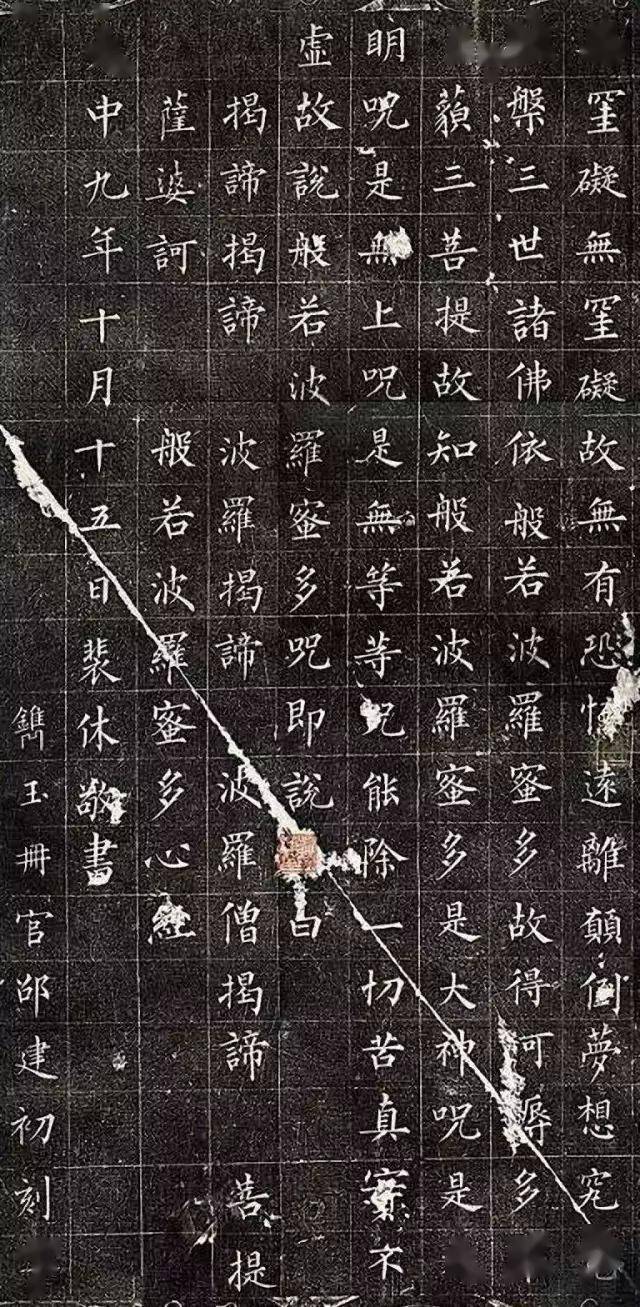 罣礙無罣礙故無有恐怖遠離顛倒夢想究
槃三世諸佛依般若波羅蜜多故得阿耨多
藐三菩提故知般若波羅蜜多是大神呪是
明呪是無上呪是無等等呪能除一切苦真實不
虛故說般若波羅蜜多呪即說曰
揭諦揭諦 波羅揭諦 波羅僧揭諦 菩提
薩婆訶 般若波羅蜜多心經
中九年十月十五日裴休敬書
鐫玉冊官邵建初刻